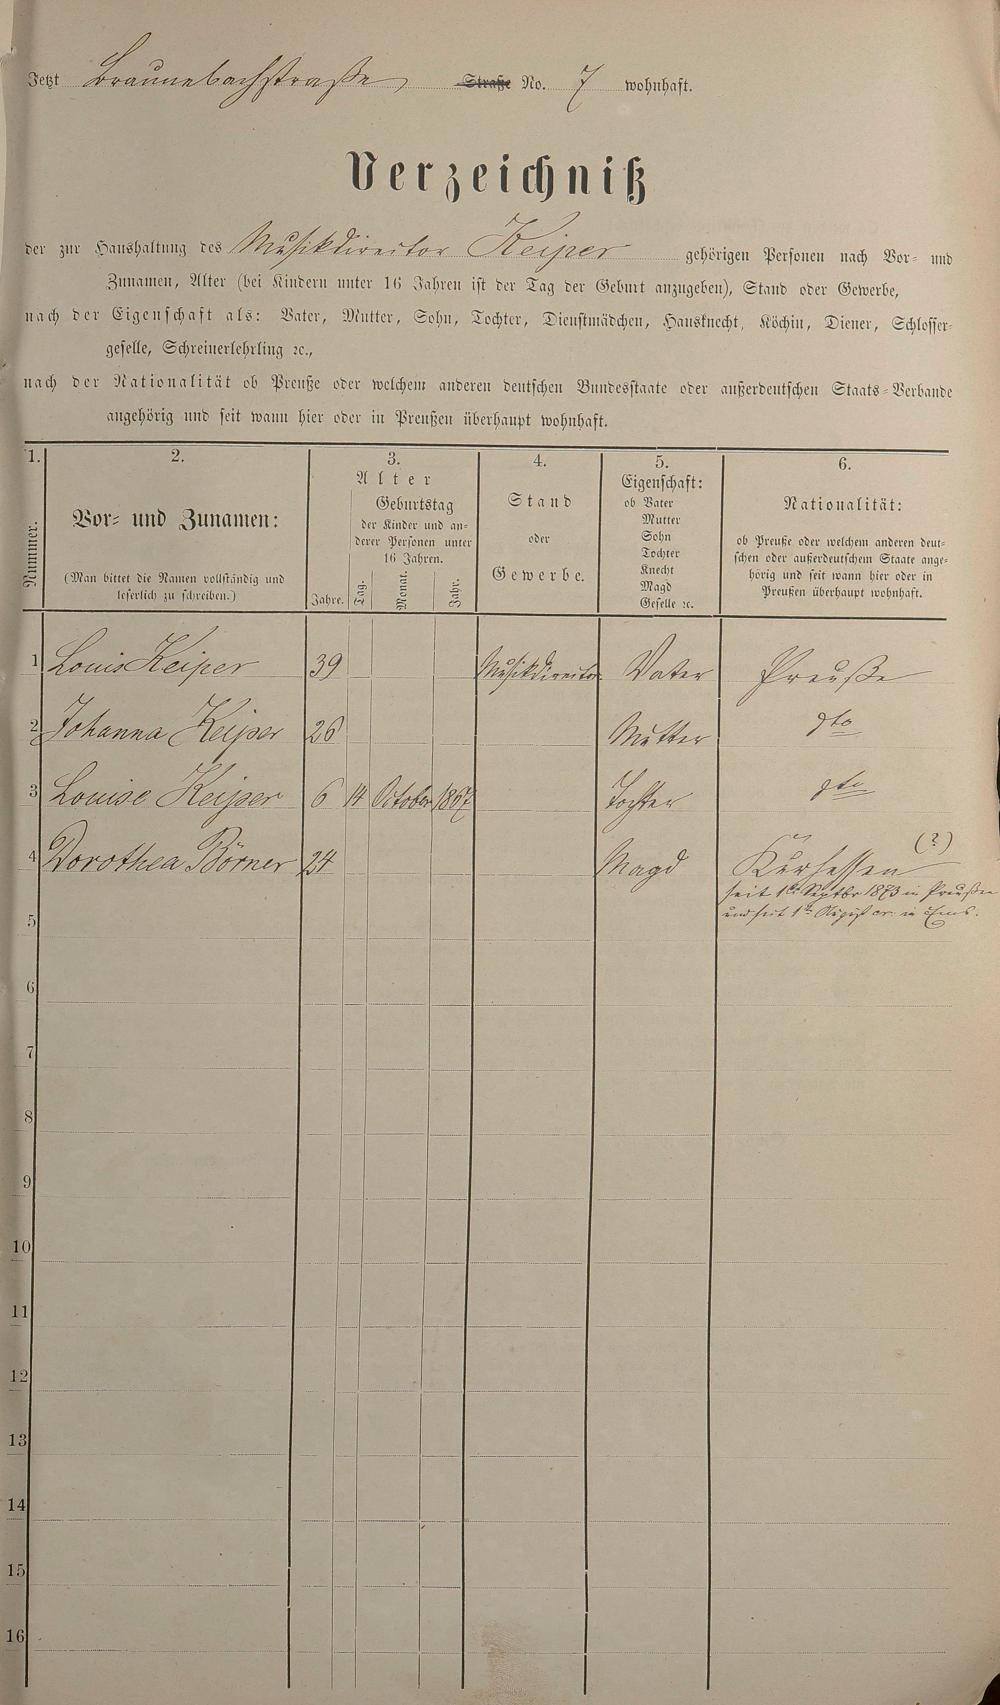 Jetzt Braunebachstraße Straße No. 7 wohnhaft.
Verzeichniß
der zur Haushaltung des Musikdirector Keiper gehörigen Personen nach Vor- und
Zunamen, Alter (bei Kindern unter 16 Jahren ist der Tag der Geburt anzugeben), Stand oder Gewerbe,
nach der Eigenschaft als: Vater, Mutter, Sohn, Tochter, Dienstmädchen, Hausknecht, Köchin, Diener, Schlosser-
geselle, Schreinerlehrling ꝛc.,
nach der Nationalität ob Preuße oder welchem anderen deutschen Bundesstaate oder außerdeutschen Staats-Verbande
angehörig und seit wann hier oder in Preußen überhaupt wohnhaft.
1. 2. 3. 4. 5. 6.
Nummer.
Vor- und Zunamen:
(Man bittet die Namen vollständig und
leserlich zu schreiben.)
Alter
Jahre.
Geburtstag
der Kinder und an-
derer Personen unter
16 Jahren.
Tag. Monat. Jahr.
Stand
oder
Gewerbe.
Eigenschaft:
ob Vater
Mutter
Sohn
Tochter
Knecht
Magd
Geselle ꝛc.
Nationalität:
ob Preuße oder welchem anderen deut-
schen oder außerdeutschem Staate ange-
hörig und seit wann hier oder in
Preußen überhaupt wohnhaft.
1 Louis Keiper 39 Musikdirector. Vater Preuße
2 Johanna Keiper 26 Mutter dto
3 Louise Keiper 6 14 October 1867 Tochter dto
4 Dorothea Börner 24 Magd Kurhessen (?)
seit 1ten Septbr 1873 in Preußen
und seit 1ten August cr. in Ems.
5
6
7
8
9
10
11
12
13
14
15
16